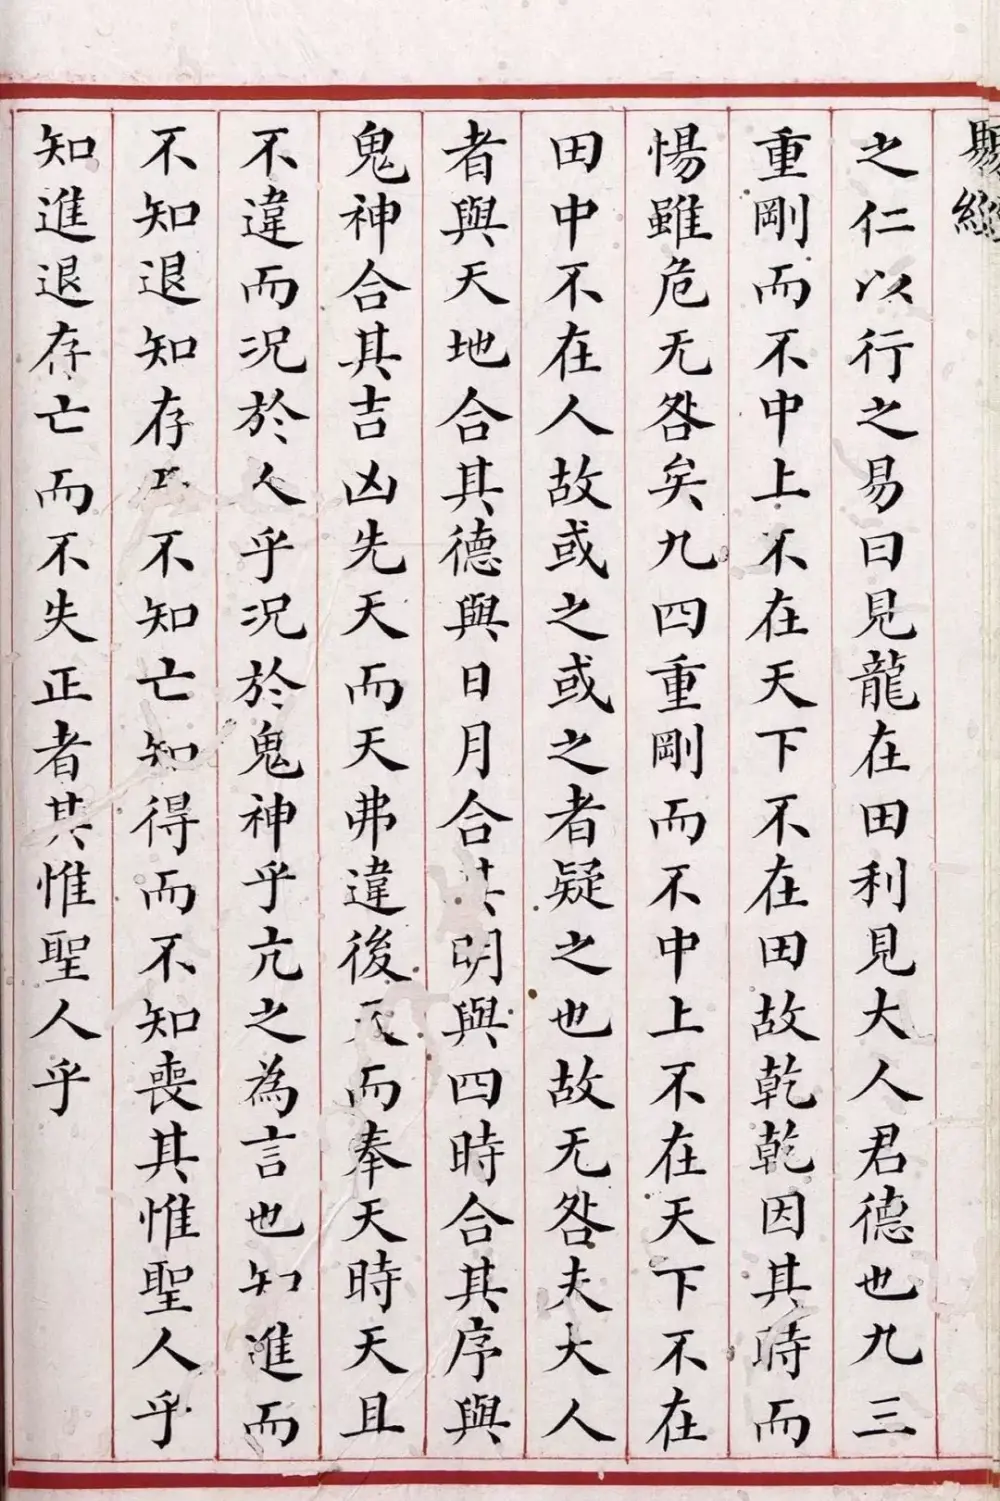 之仁以行之易曰見龍在田利見大人君德也九三
重剛而不中上不在天下不在田故乾乾因其時而
惕雖危无咎矣九四重剛而不中上不在天下不在
田中不在人故或之或之者疑之也故无咎夫大人
者與天地合其德與日月合其明與四時合其序與
鬼神合其吉凶先天而天弗違後天而奉天時天且
不違而況於人乎況於鬼神乎亢之為言也知進而
不知退知存而不知亡知得而不知喪其惟聖人乎
知進退存亡而不失正者其惟聖人乎